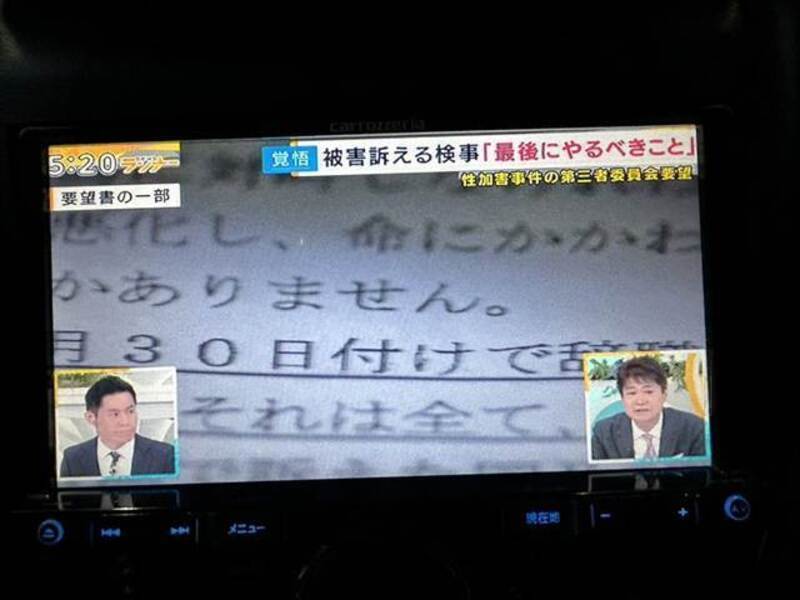 carrozzeria
5:20
ランナー
覚悟
被害訴える検事「最後にやるべきこと」
性加害事件の第三者委員会要望
要望書の一部
悪化し、命にかかわ
かありません。
月30日付けで辞職
それは全て、
メニュー
現在地